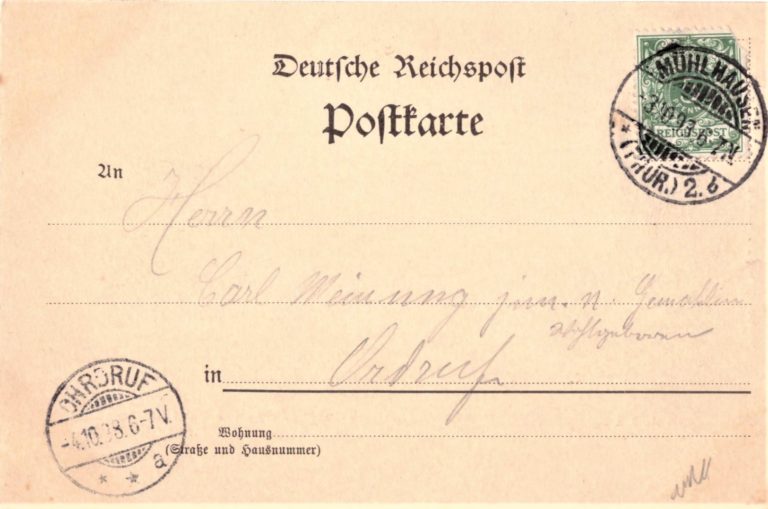 Deutsche Reichspost
Postkarte
MÜHLHAUSEN
-3.10.98.6-7V.
* (THÜR.) 2. b
REICHSPOST
An
Herrn
Carl Meinung jun. n. Gemahlin
Wohlgeboren
in Ordruf
OHRDRUF
-4.10.98.6-7V.
* * a
Wohnung
(Straße und Hausnummer)